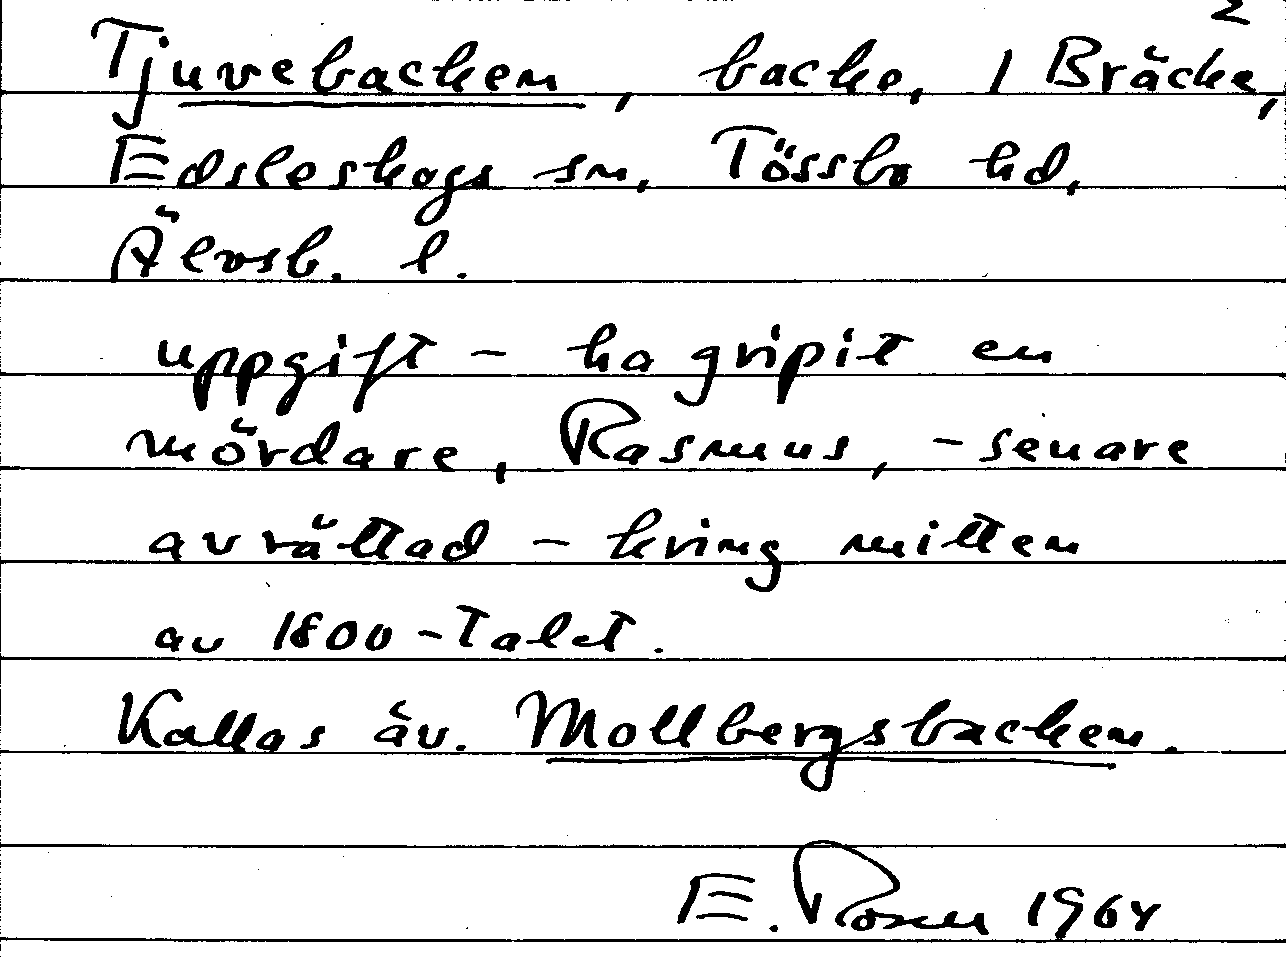 2
Tjuvebacken, backe, 1 Bräcke,
Edsleskogs sn, Tössbo hd,
Älvsb. l.
uppgift – ha gripit en
mördare, Rasmus, – senare
avrättad – kring mitten
av 1800-talet.
Kallas äv. Mollbergsbacken.
E. Rosén 1964